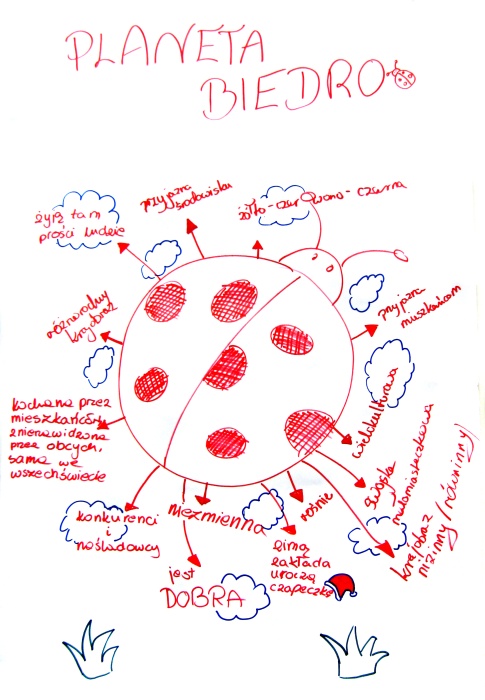 PLANETA
BIEDRO
żyją tam
prości ludzie
przyjazna
środowisku
żółto-czerwono-czarna
różnorodny
krajobraz
przyjazna
mieszkańcom
kochana przez
mieszkańców,
znienawidzona
przez obcych,
sama we
wszechświecie
wielokulturowa
wiejska
małomiasteczkowa
krajobraz
nizinny/równinny/
konkurenci
i
naśladowcy
niezmienna
rośnie
jest
DOBRA
zimą
zakłada
uroczą
czapeczkę